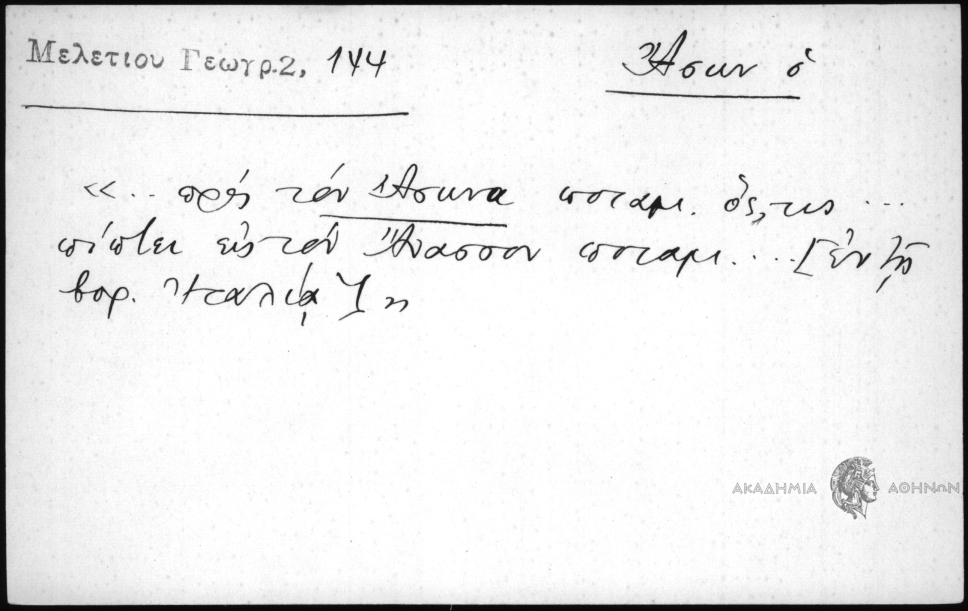 Μελετίου Γεωγρ.2, 144
Ἄσων ὁ
«.. πρὸς τὸν Ἄσωνα ποταμ. ὅς,τις ...
πίπτει εἰς τὸν Ἄνασσον ποταμ.... [ἐν τῇ
βορ. Ἰταλίᾳ]»
ΑΚΑΔΗΜΙΑ ΑΘΗΝΩΝ